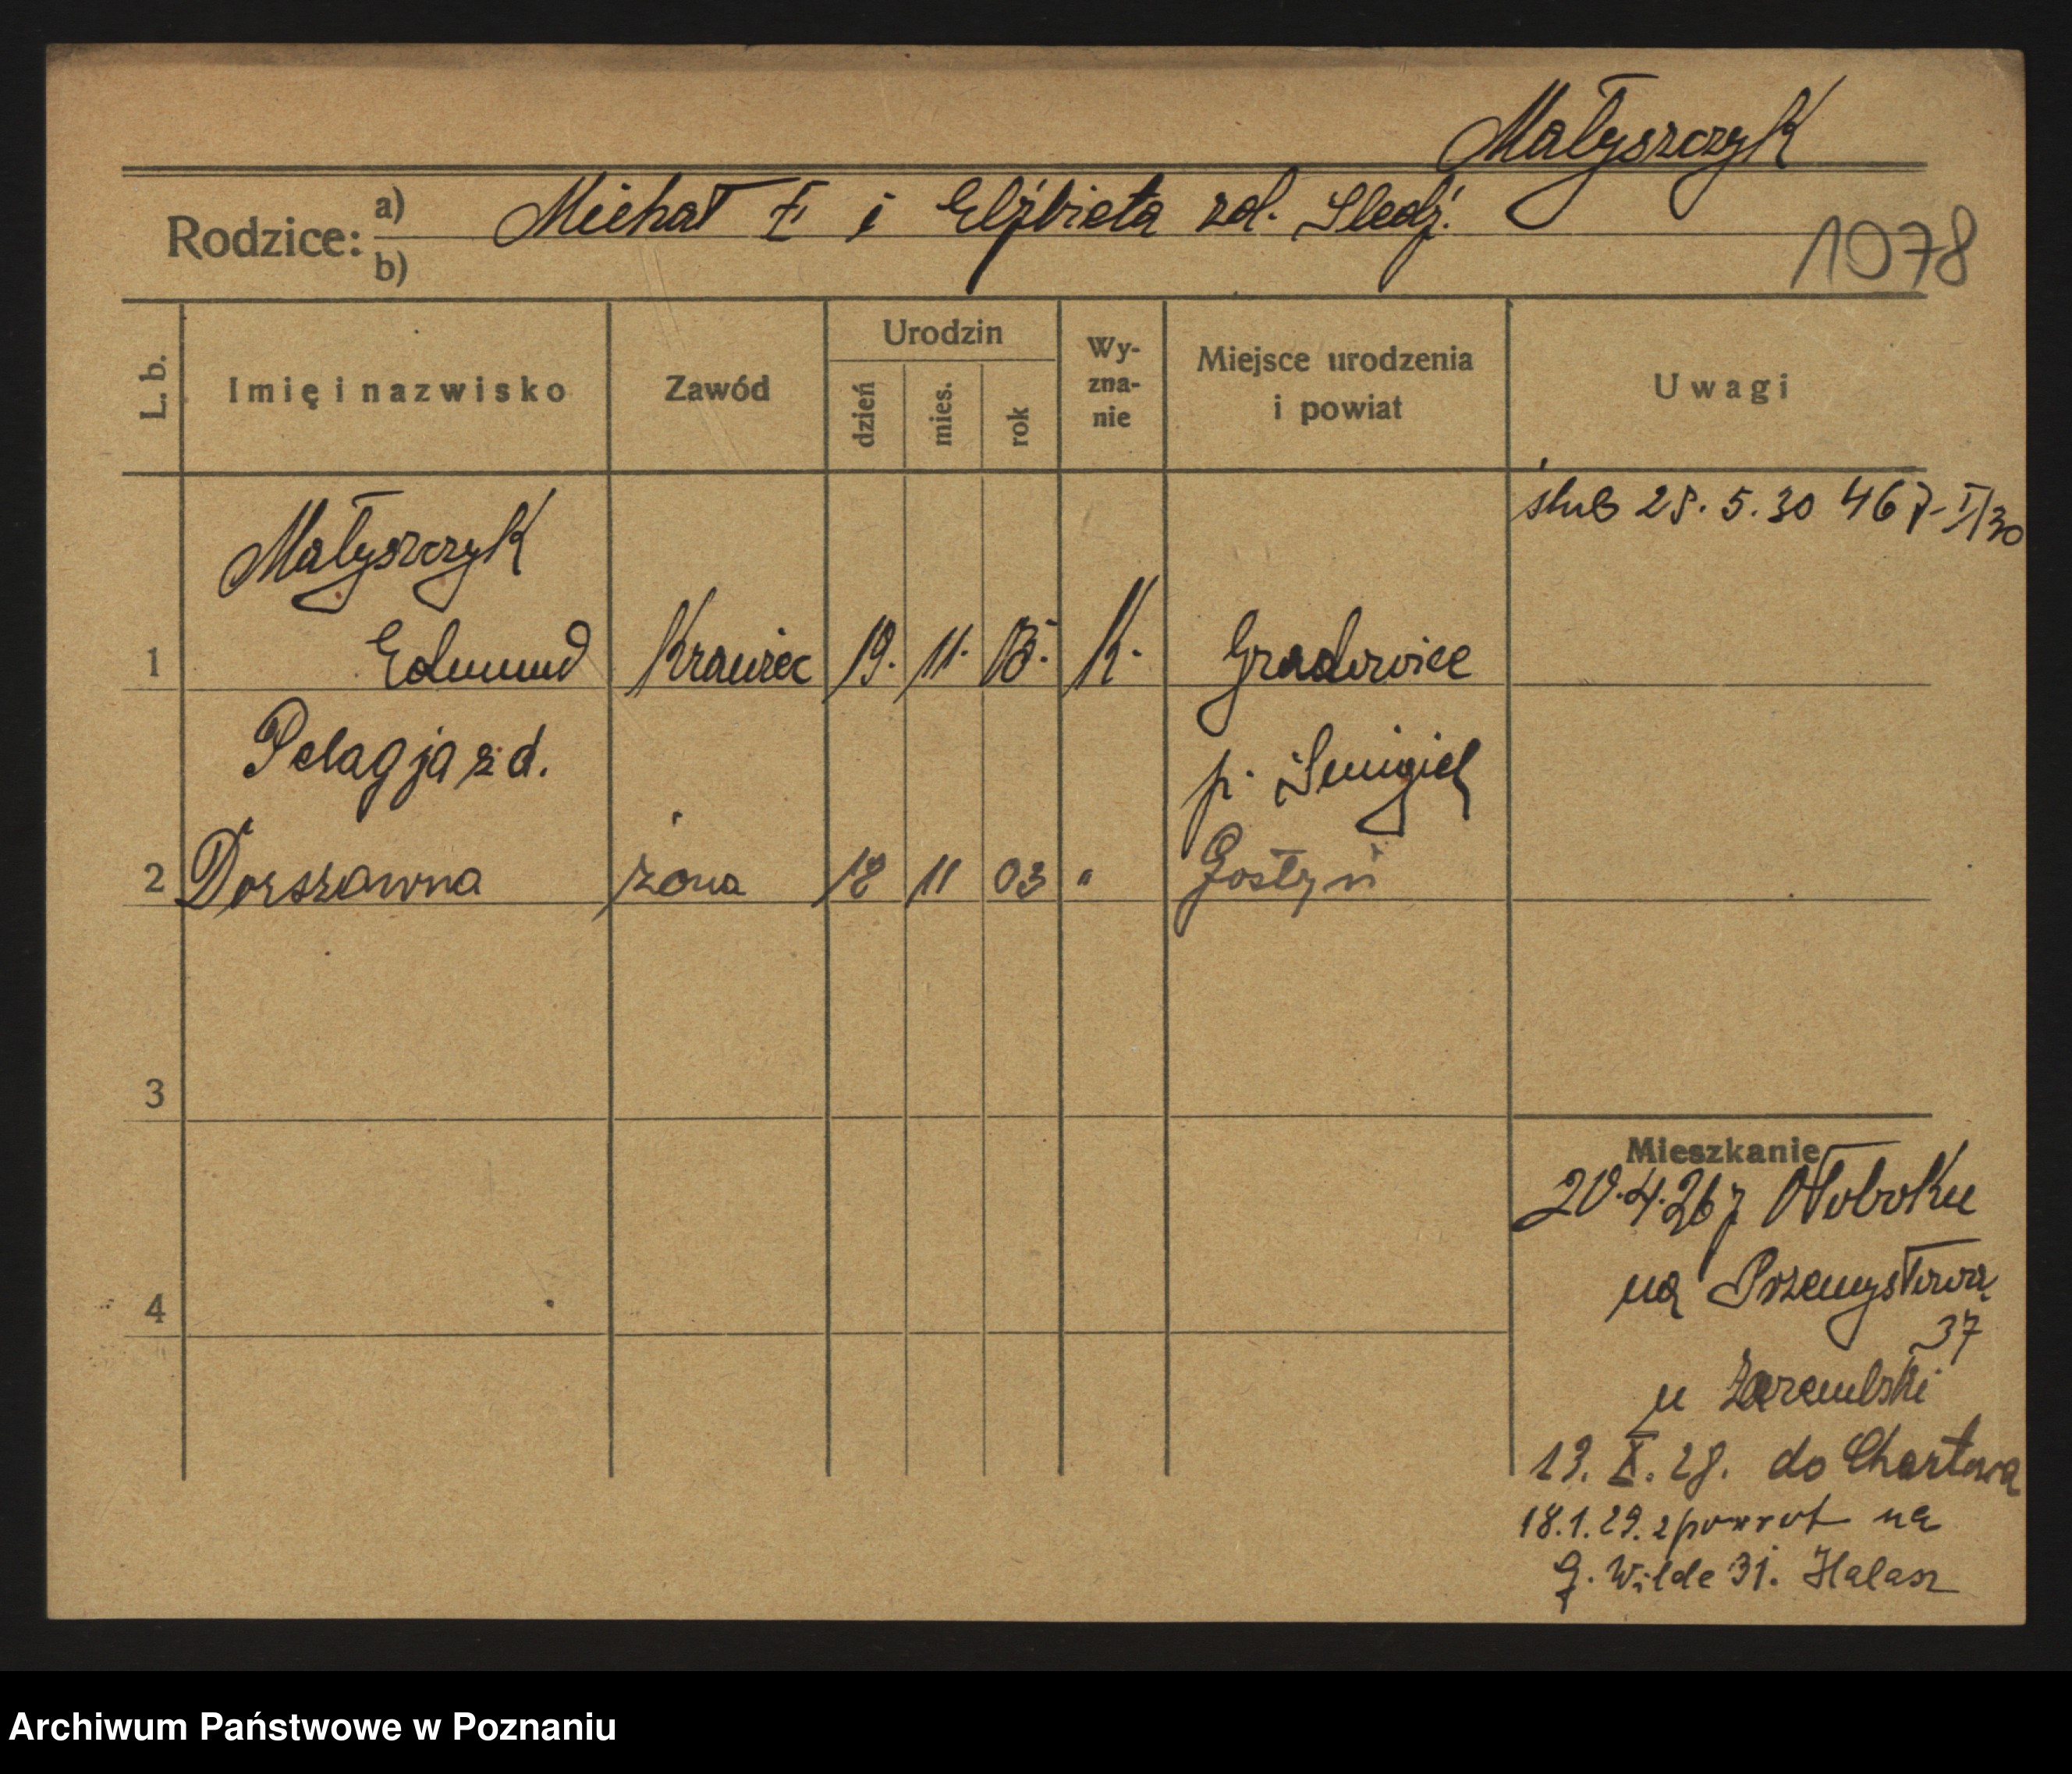 Małyszczyk
Rodzice: a) Michał i Elżbieta zd. Śledź.
b)
1078
L. b. Imię i nazwisko Zawód Urodzin dzień mies. rok Wyznanie Miejsce urodzenia i powiat Uwagi
ślub 28.5.30 467-II/30
Małyszczyk
1 Edmund Krawiec 19. 11. K. Gradowice
Pelagja zd. p. Śmigiel
2 Dorszawna żona 18 11 03 " Gostyń
3
Mieszkanie
20.4.26 z Ołoboku
na Przemysłową
37
4
u Zaremblski
13. X. 28. do Chartowa
18.1.29. zpowrot na
G. Wilde 31. Halasz
Archiwum Państwowe w Poznaniu